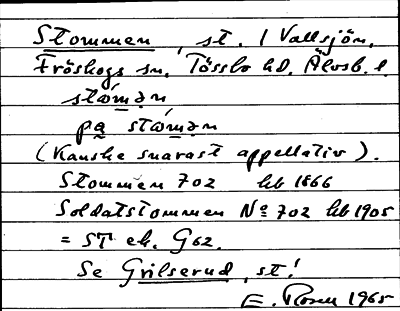 Stommen, st. / Vallsjön,
Fröskogs sn, Tössbo hd. Älvsb. l.
stɷ́mən
pa stɷ́mən
(Kanske snarast appellativ).
Stommen 702 hb 1866
Soldatstommen No 702 hb 1905
= ST ek. G62.
Se Grilserud, st!
E. Rosen 1965